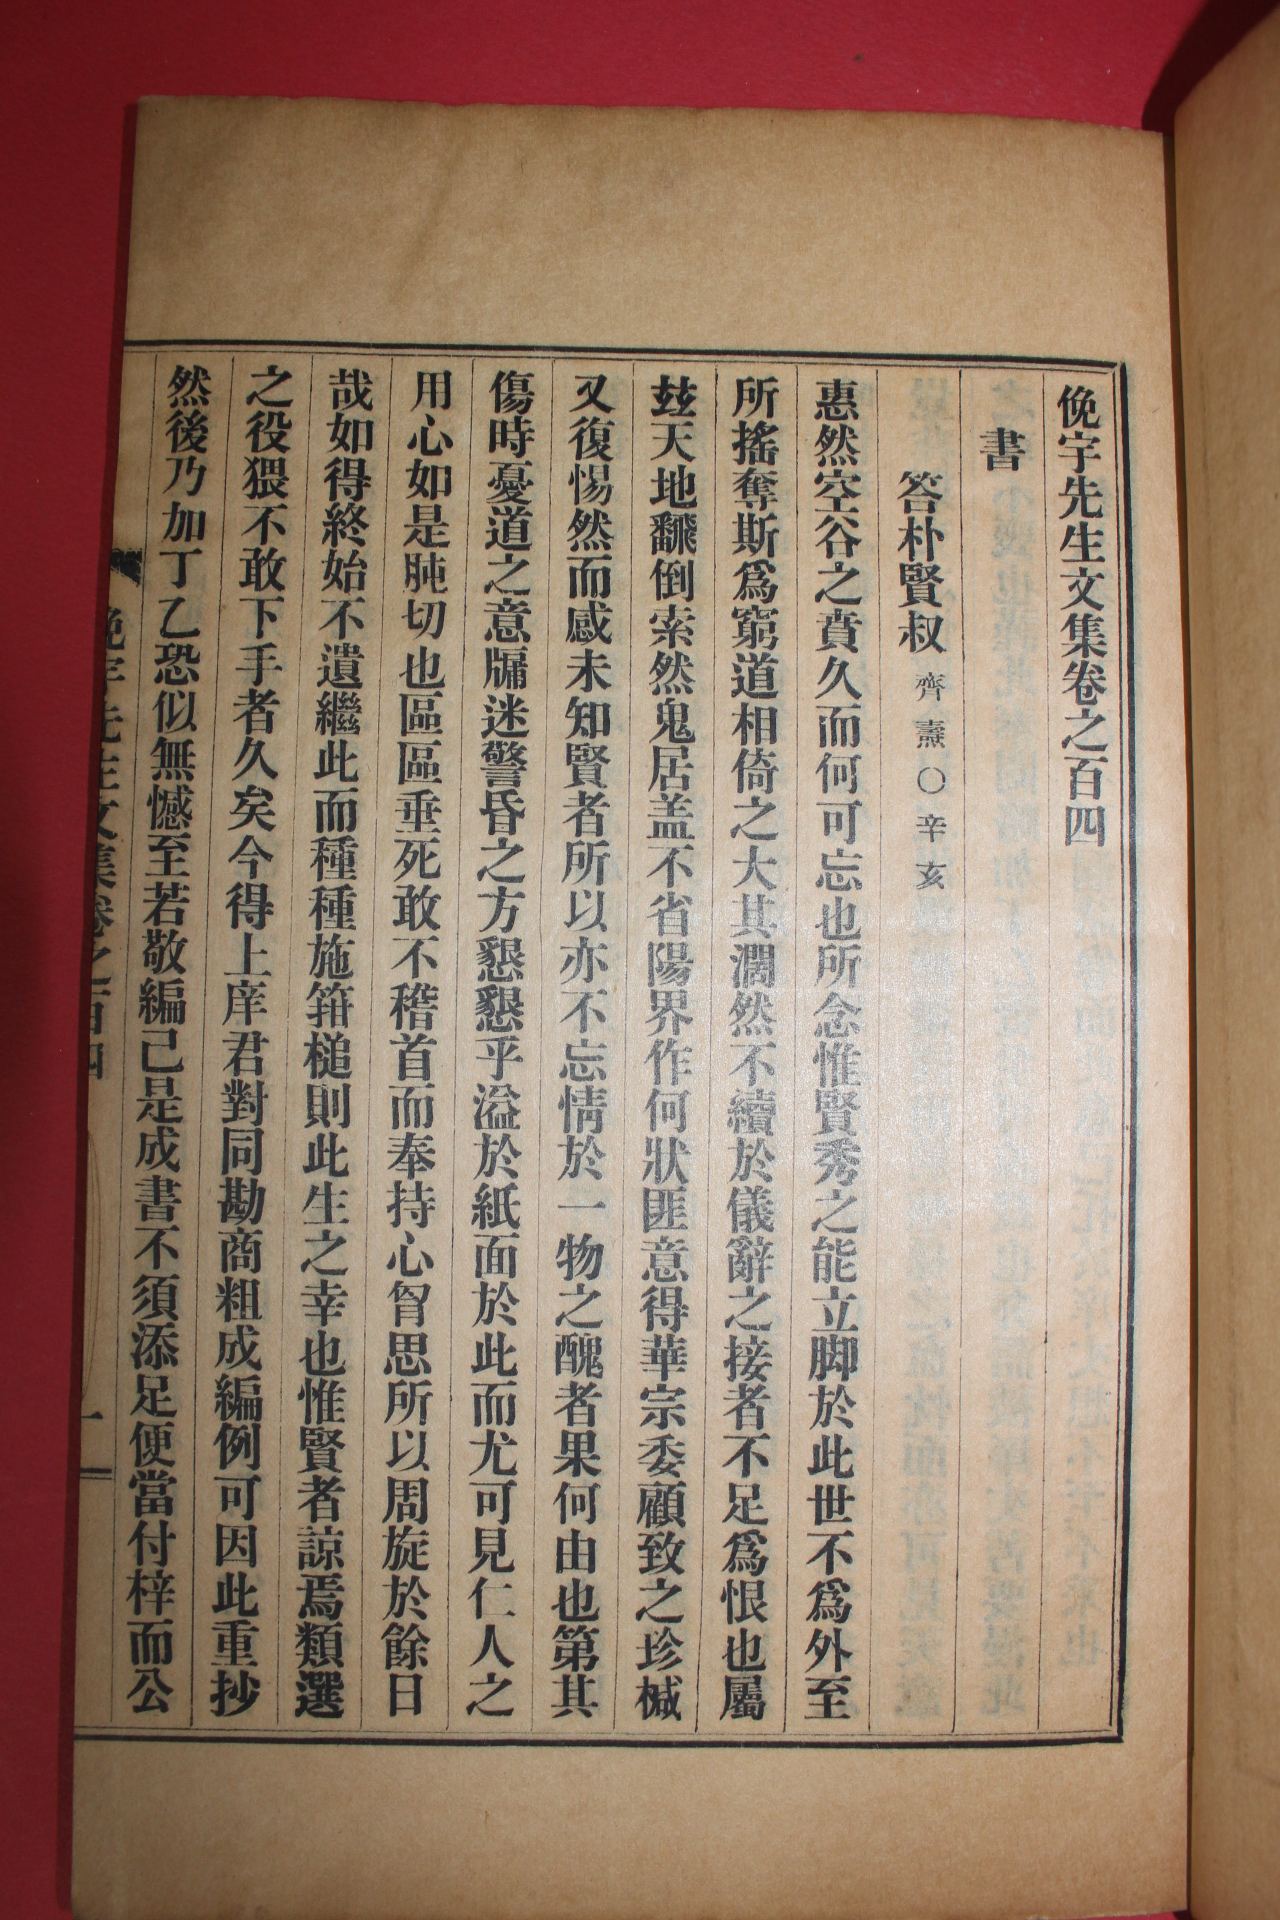 俛宇先生文集卷之百四
書
答朴賢叔 齊燾○辛亥
惠然空谷之賁久而何可忘也所念惟賢秀之能立脚於此世不爲外至
所搖奪斯爲窮道相倚之大其濶然不續於儀辭之接者不足爲恨也屬
玆天地飜倒索然鬼居盖不省陽界作何狀匪意得華宗委顧致之珍椷
又復惕然而感未知賢者所以亦不忘情於一物之醜者果何由也第其
傷時憂道之意牖迷警昏之方懇懇乎溢於紙面於此而尤可見仁人之
用心如是肫切也區區垂死敢不稽首而奉持心胷思所以周旋於餘日
哉如得終始不遺繼此而種種施箝槌則此生之幸也惟賢者諒焉類選
之役猥不敢下手者久矣今得上庠君對同勘商粗成編例可因此重抄
然後乃加丁乙恐似無憾至若敬編己是成書不須添足便當付梓而公
俛宇先生文集卷之百四
一